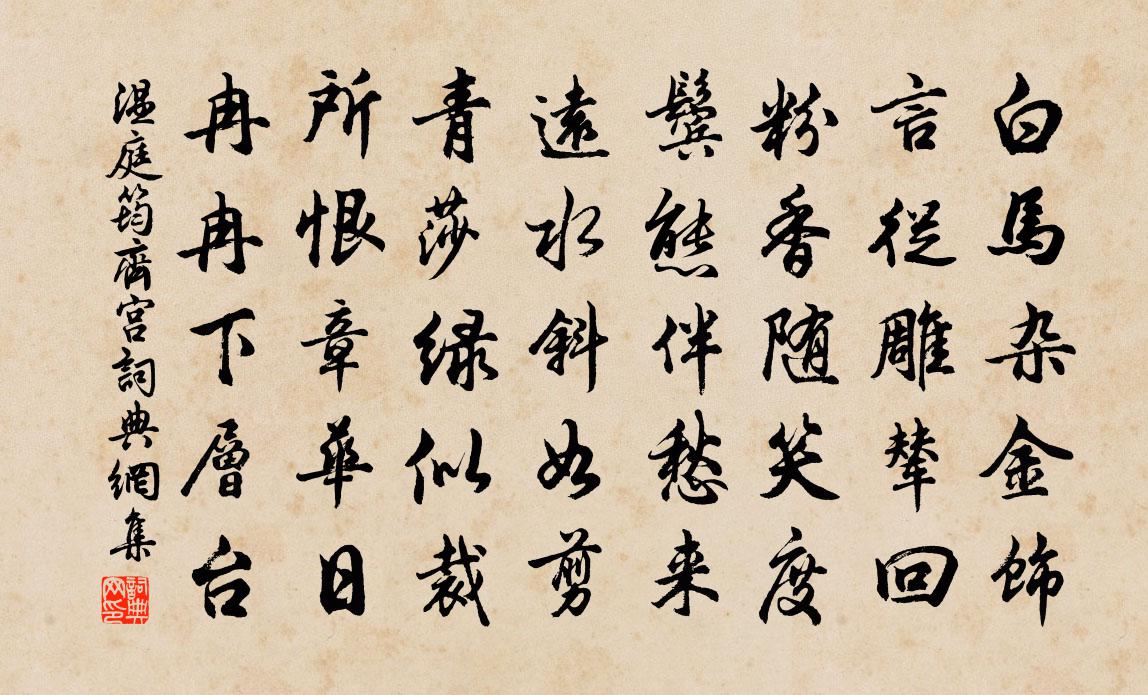 白馬杂金飾
言從雕輦回
粉香随笑度
鬓態伴愁来
遠水斜如剪
青莎緑似裁
所恨章華日
冉冉下層台
温庭筠齊宫詞典網集
詞典网印